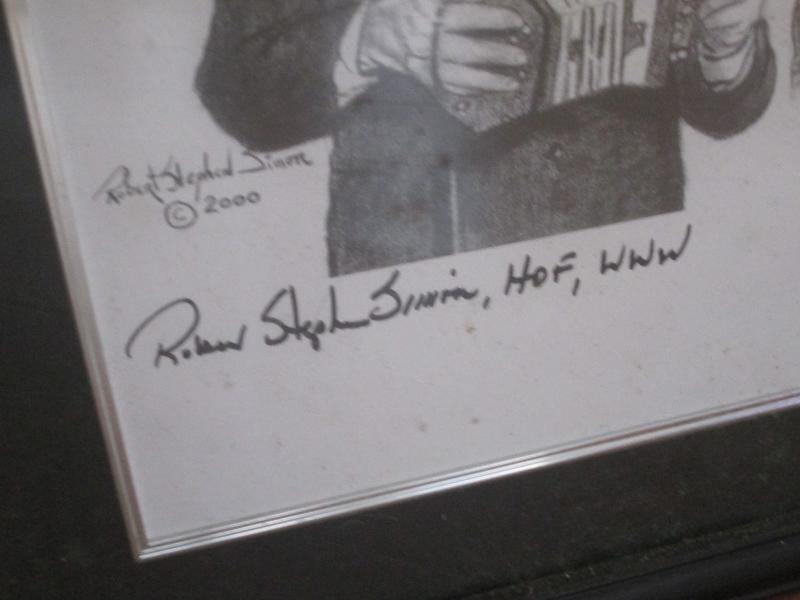 Robert Stephen Simon
© 2000
Robert Stephen Simon, HOF, WWW